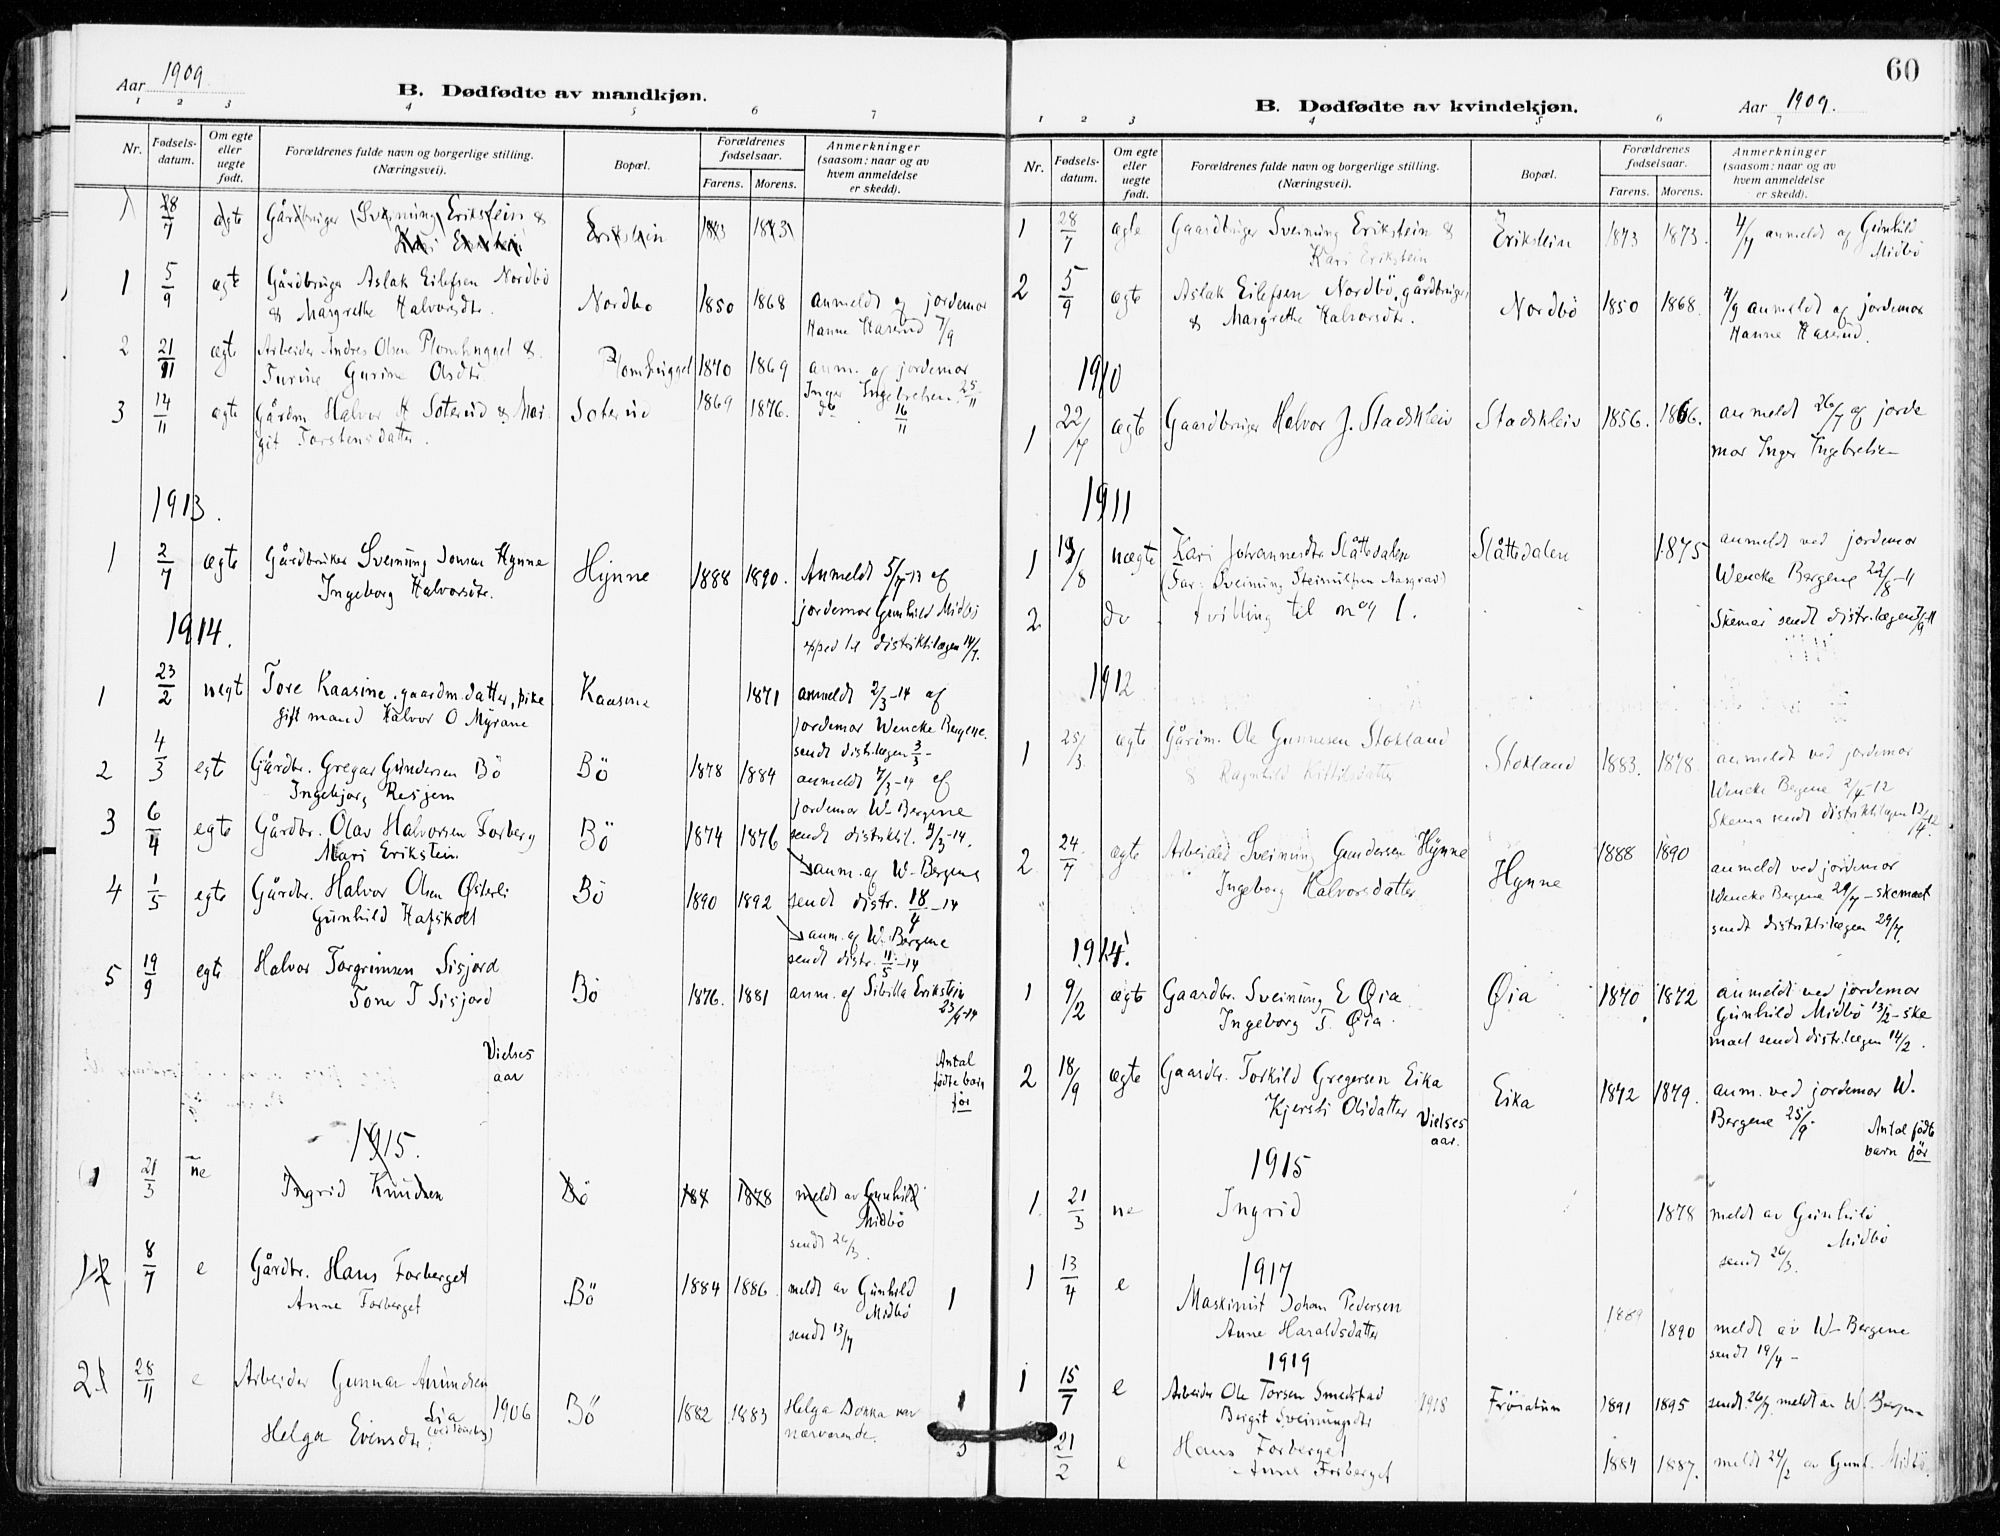 Aar 1909.
B. Dødfødte av mandkjøn.
1 2 3 4 5 6 7
Nr. Fødsels-datum. Om egte eller uegte født. Forældrenes fulde navn og borgerlige stilling. (Næringsvei). Bopæl. Forældrenes fødselsaar. Farens. Morens. Anmerkninger (saasom: naar og av hvem anmeldelse er skedd).
1 28/7 ægte Gårdbruger Sveinung Erikstein &
Kari Erikstein Erikstein 1873 1873
1 5/9 ægt Gårdbruger Aslak Eilefsen Nordbö
& Margrethe Halvorsdtr. Nordbö 1850 1868 anmeldt af jordemor
Hanne Haserud 7/9
2 21/11 ægte Arbeider Andres Olsen Plomhugget &
Turine Gurine Olsdtr. Plomhugget 1870 1869 anm. af jordemor
Inger Ingebretsen 25/11
3 14/11 ægte Gårdm Halvor H Soterud & Mar
git Torstensdatter. Soterud 1869 1876. do. 16/11
1913.
1 2/7 ægte Gårdbruker Sveinung Jonsen Hynne
Ingeborg Halvorsdtr. Hynne 1888 1890. Anmeldt 5/7-13 af
jordemor Gunhild Midbö
distriktslægen 14/7.
1914.
1 23/2 uegt Tore Kaasine, gaardm.datter, pike
gift mand Halvor O Myrane Kaasine 1871 anmeldt 2/3-14 af
jordemor Wencke Bergene.
sendt distr.lægen 3/3-
2 4/3 egte Gårdbr. Gregar Gundersen Bö
Ingebjorg Resjem Bö 1878 1884 anmeldt 7/3-14 af
jordemor W. Bergene
sendt distriktsl. 9/3-14.
3 6/4 egte Gårdbr. Olav Halvorsen Forberg
Mari Erikstein Bö 1874 1876 anm. af W. Bergene
sendt distr. 18/4-14
4 1/5 egte Gårdbr. Halvor Olsen Østerli
Gunhild Hafskolt Bö 1890 1892 anm. af W. Bergene
sendt distr. 11/5-14
5 19/9 egte Halvor Torgrimsen Sisjord
Tone T Sisjord Bö 1876. 1881 anm. af Sibilla Erikstein
23/9-14
Vielses
aar
Antal
födte barn
för
1915.
1 21/3 ne Ingrid Knudsen Bö 184 1878 meldt av Gunhild
Midbö
sendt 26/3.
12 8/7 e Gårdbr. Hans Forberget
Anne Forberget Bö 1884 1886. meldt av Gunhild
Midbö 1
sendt 13/7
21 28/11 e Arbeider Gunnar Amundsen
Lia
Helga Evensdtr. 1906 Bö 1882 1883 Helga Dokka var
nærværende. 1
3
60
B. Dødfødte av kvindekjøn.
Aar 1909.
1 2 3 4 5 6 7
Nr. Fødsels-datum. Om egte eller uegte født. Forældrenes fulde navn og borgerlige stilling. (Næringsvei). Bopæl. Forældrenes fødselsaar. Farens. Morens. Anmerkninger (saasom: naar og av hvem anmeldelse er skedd).
1 28/7 ægte Gaardbruger Sveinung Erikstein &
Kari Erikstein Erikstein 1873 1873. 4/7 anmeldt af Gunhild
Midbö
2 5/9 ægte Aslak Eilefsen Nordbö, gårdbruger,
& Margrethe Halvorsdtr. Nordbö 1850 1868. 7/9 anmeldt af jordemor
Hanne Haserud.
1910
1 22/7 ægte Gaardbruger Halvor J. Stadskleiv Stadskleiv 1856. 1866. anmeldt 26/7 af jorde
mor Inger Ingebretsen
1911
1 19/8 uægte Kari Johannesdtr Slåttedalen
(Far: Sveinung Steinulfsen Aasgrav) Slåttedalen 1875 anmeldt ved jordemor
Wencke Bergene 22/8-11
2 do tvilling til no 1. Skemai sendt distr.lægen 7/9-11
1912
1 25/3 ægte Gårdm. Ole Gunnesen Stokland
& Ragnhild Kittilsdatter Stokland 1883. 1878. anmeldt ved jordemor
Wencke Bergene 2/4-12
Skema sendt distriktslægen 12/4-12
2 24/7 ægte Arbeider Sveinung Gundersen Hynne
Ingeborg Halvorsdatter Hynne 1888 1890 anmeldt ved jordemor
Wencke Bergene 29/7 - skemaet
sendt distriktslægen 29/7.
1914.
1 9/2 ægte Gaardbr. Sveinung E Øia
Ingeborg T. Øia. Øia 1870 1872 anmeldt ved jordemor
Gunhild Midbö 13/2 - ske
maet sendt distr.lægen 14/2.
2 18/9 ægte Gaardbr. Torkild Gregersen Eika
Kjersti Olsdatter Eika 1872 1879. anm. ved jordemor W.
Bergene 25/9
Vielses
aar.
Antal födte
barn för
1915
1. 21/3 ne Ingrid 1878 meldt av Gunhild
Midbö
sendt 26/3.
1917
1 13/4 e Maskinist Johan Pedersen
Anne Haraldsdatter 1889 1890 meldt av W. Bergene
sendt 19/4 -
1919
1 15/7 e Arbeider Ole Torsen Smedstad
Birgit Sveinungsdtr 1918 Fröistum 1891 1895 sendt 26/7 meldt av W. Bergene
21/2 e Hans Forberget
Anne Forberget 1884 1887. meldt 24/2 av Gunh. Midbö.